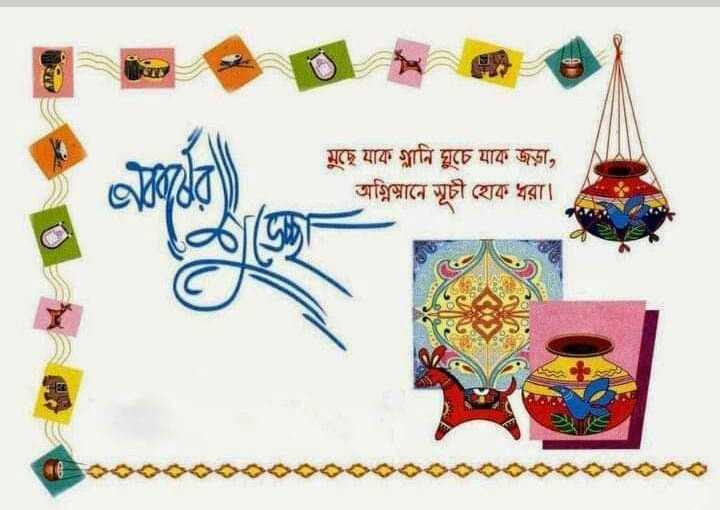 নববর্ষের
শুভেচ্ছা
মুছে যাক গ্লানি ঘুচে যাক জড়া,
অগ্নিস্নানে সূচী হোক ধরা।